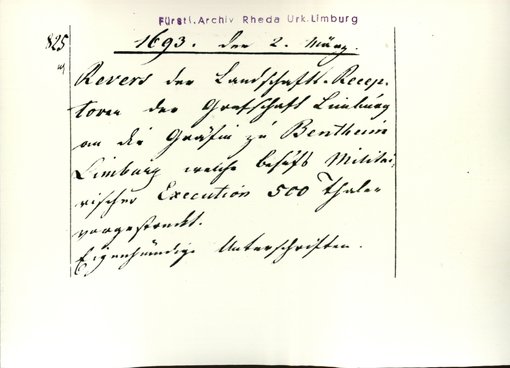 Fürstl. Archiv Rheda Urk. Limburg
825
1693. den 2. März.
Revers der Landschafts-Recep-
toren der Grafschaft Limburg
an die Gräfin zu Bentheim
Limburg welche behufs Militai-
rischer Execution 500 Thaler
vorgestreckt.
Eigenhändige Unterschriften.